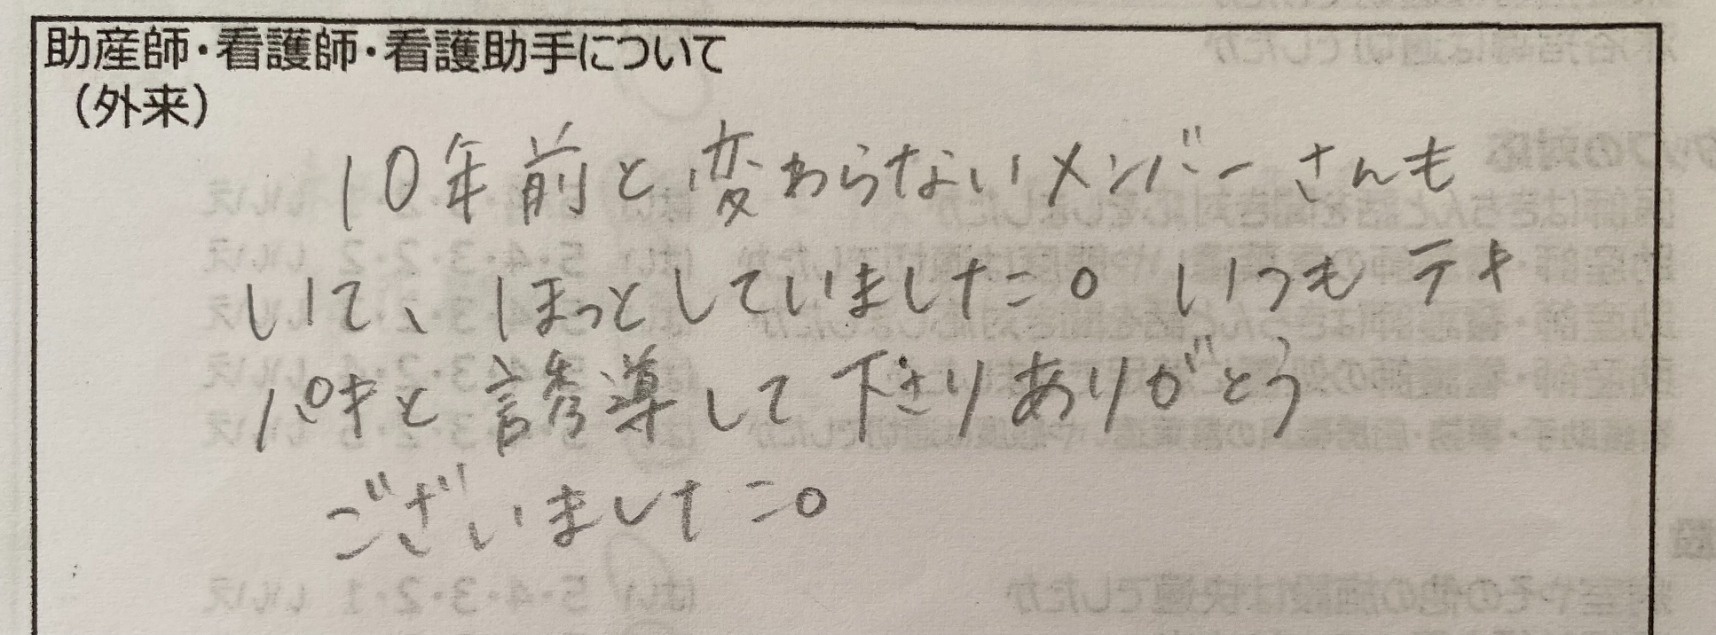 助産師・看護師・看護助手について
（外来）
10年前と変わらないメンバーさんも
いて、ほっとしていました。いつもテキ
パキと誘導して下さりありがとう
ございました。